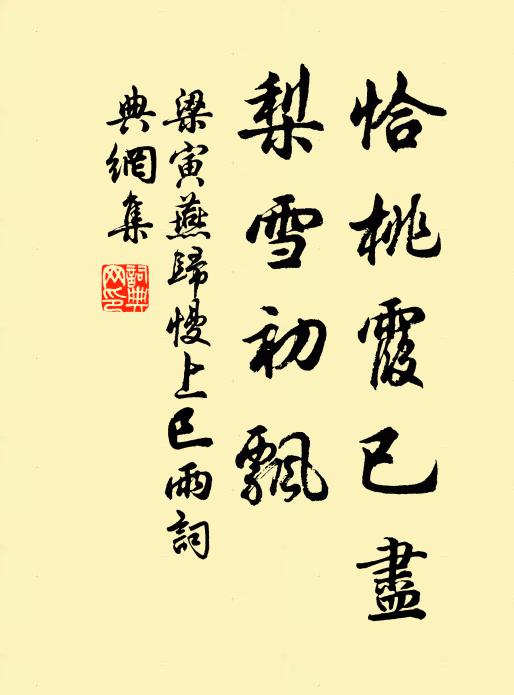 恰桃霞已盡
梨雪初飄
梁寅燕歸慢上巳雨詞
典網集
詞典
网印